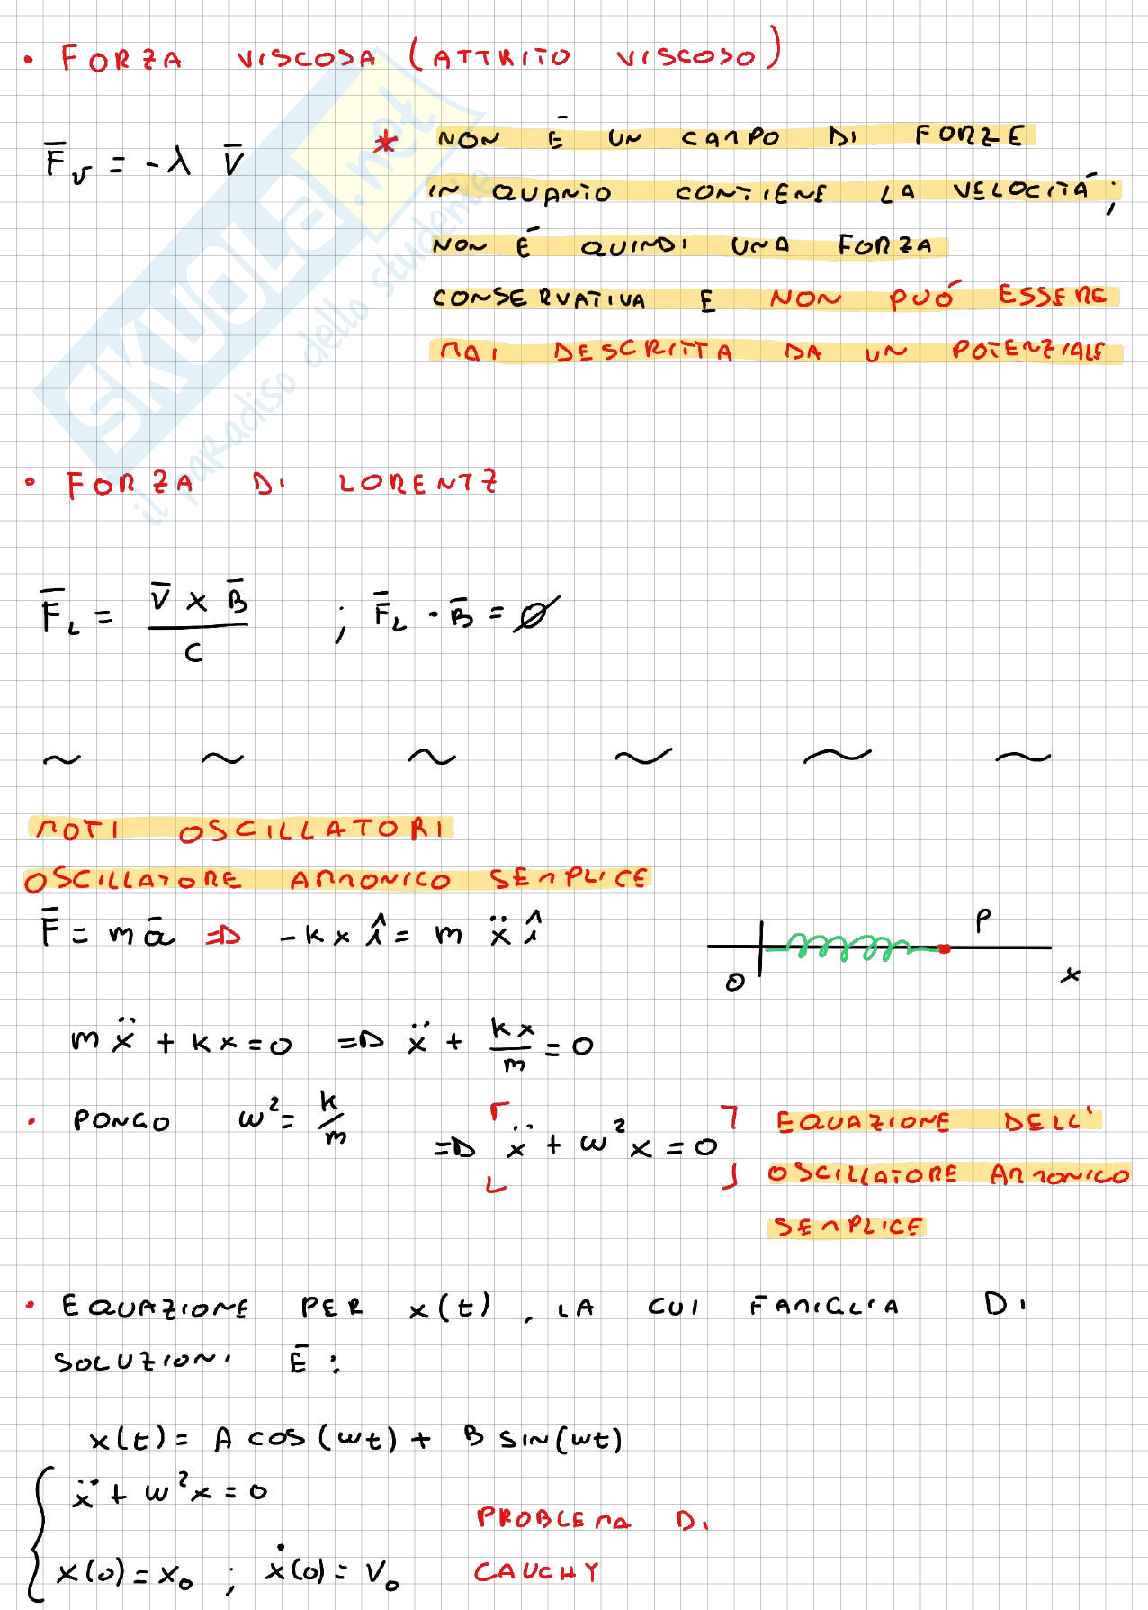 • FORZA VISCOSA (ATTRITO VISCOSO)
F̄v = -λ V̄
* NON È UN CAMPO DI FORZE
IN QUANTO CONTIENE LA VELOCITÀ;
NON È QUINDI UNA FORZA
CONSERVATIVA E NON PUÒ ESSERE
MAI DESCRITTA DA UN POTENZIALE
SKUOLA.net
il paradiso dello studente
• FORZA DI LORENTZ
F̄L = V̄ x B̄ / C ; F̄L · B̄ = ∅
~ ~ ~ ~ ~ ~
MOTI OSCILLATORI
OSCILLATORE ARMONICO SEMPLICE
F̄ = m ā => -kx î = m ẍ î
P
O x
m ẍ + kx = 0 => ẍ + kx/m = 0
• PONGO ω² = k/m => [ ẍ + ω²x = 0 ] EQUAZIONE DELL'
OSCILLATORE ARMONICO
SEMPLICE
• EQUAZIONE PER x(t), LA CUI FAMIGLIA DI
SOLUZIONI È:
x(t) = A cos(ωt) + B sin(ωt)
{ ẍ + ω²x = 0
x(0) = x₀ ; ẋ(0) = V₀
PROBLEMA DI
CAUCHY